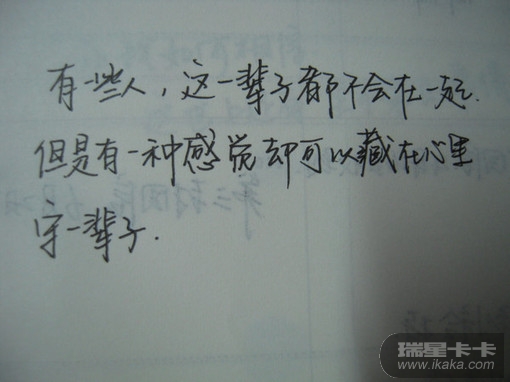 有一些人，这一辈子都不会在一起.
但是有一种感觉却可以藏在心里
守一辈子.
瑞星卡卡
www.ikaka.com